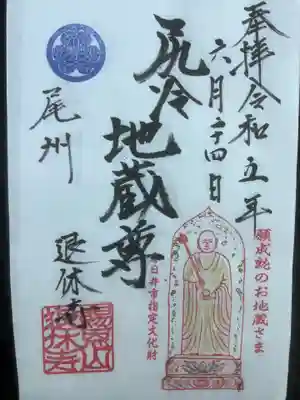 奉拝 令和五年
六月二十四日
尻冷地蔵尊
尾州
退休寺
願成就のお地蔵さま
日井市指定文化財